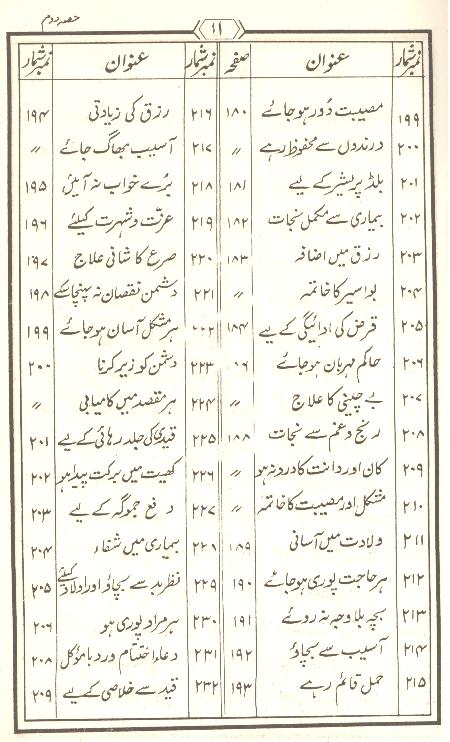 حصہ دوم
۱۱
نمبر شمار عنوان صفحہ نمبر شمار عنوان نمبر شمار
۱۹۹ مصیبت دور ہو جائے ۱۸۰ ۲۱۶ رزق کی زیادتی ۱۹۴
۲۰۰ درندوں سے محفوظ رہے 〃 ۲۱۷ آسیب بھاگ جائے 〃
۲۰۱ بلڈ پریشر کے لیے ۱۸۱ ۲۱۸ بُرے خواب نہ آئیں ۱۹۵
۲۰۲ بیماری سے مکمل نجات ۱۸۲ ۲۱۹ عزّت و شہرت کیلئے ۱۹۶
۲۰۳ رزق میں اضافہ ۱۸۳ ۲۲۰ صرع کا شافی علاج ۱۹۷
۲۰۴ بواسیر کا خاتمہ 〃 ۲۲۱ دشمن نقصان نہ پہنچا سکے ۱۹۸
۲۰۵ قرض کی ادائیگی کے لیے ۱۸۴ ۲۲۲ ہر مشکل آسان ہو جائے ۱۹۹
۲۰۶ حاکم مہربان ہو جائے ۲۲۳ دشمن کو زیر کرنا ۲۰۰
۲۰۷ بے چینی کا علاج 〃 ۲۲۴ ہر مقصد میں کامیابی 〃
۲۰۸ رنج و غم سے نجات ۱۸۸ ۲۲۵ قیدی کی جلد رہائی کے لیے ۲۰۱
۲۰۹ کان اور دانت کا درد نہ ہو 〃 ۲۲۶ کھیت میں برکت پیدا ہو ۲۰۲
۲۱۰ مشکل اور مصیبت کا خاتمہ 〃 ۲۲۷ دفع جموگہ کے لیے ۲۰۳
۲۱۱ ولادت میں آسانی ۱۸۹ ۲۲۸ بیماری میں شفاء ۲۰۴
۲۱۲ ہر حاجت پوری ہو جائے ۱۹۰ ۲۲۹ نظر بد سے بچاؤ اور اولاد کیلئے ۲۰۵
۲۱۳ بچہ بلا وجہ نہ روئے ۱۹۱ ۲۳۰ ہر مراد پوری ہو ۲۰۶
۲۱۴ آسیب سے بچاؤ ۱۹۲ ۲۳۱ دعاء اختتام ورد با مؤکل ۲۰۸
۲۱۵ حمل قائم رہے ۱۹۳ ۲۳۲ قید سے خلاصی کے لیے ۲۰۹